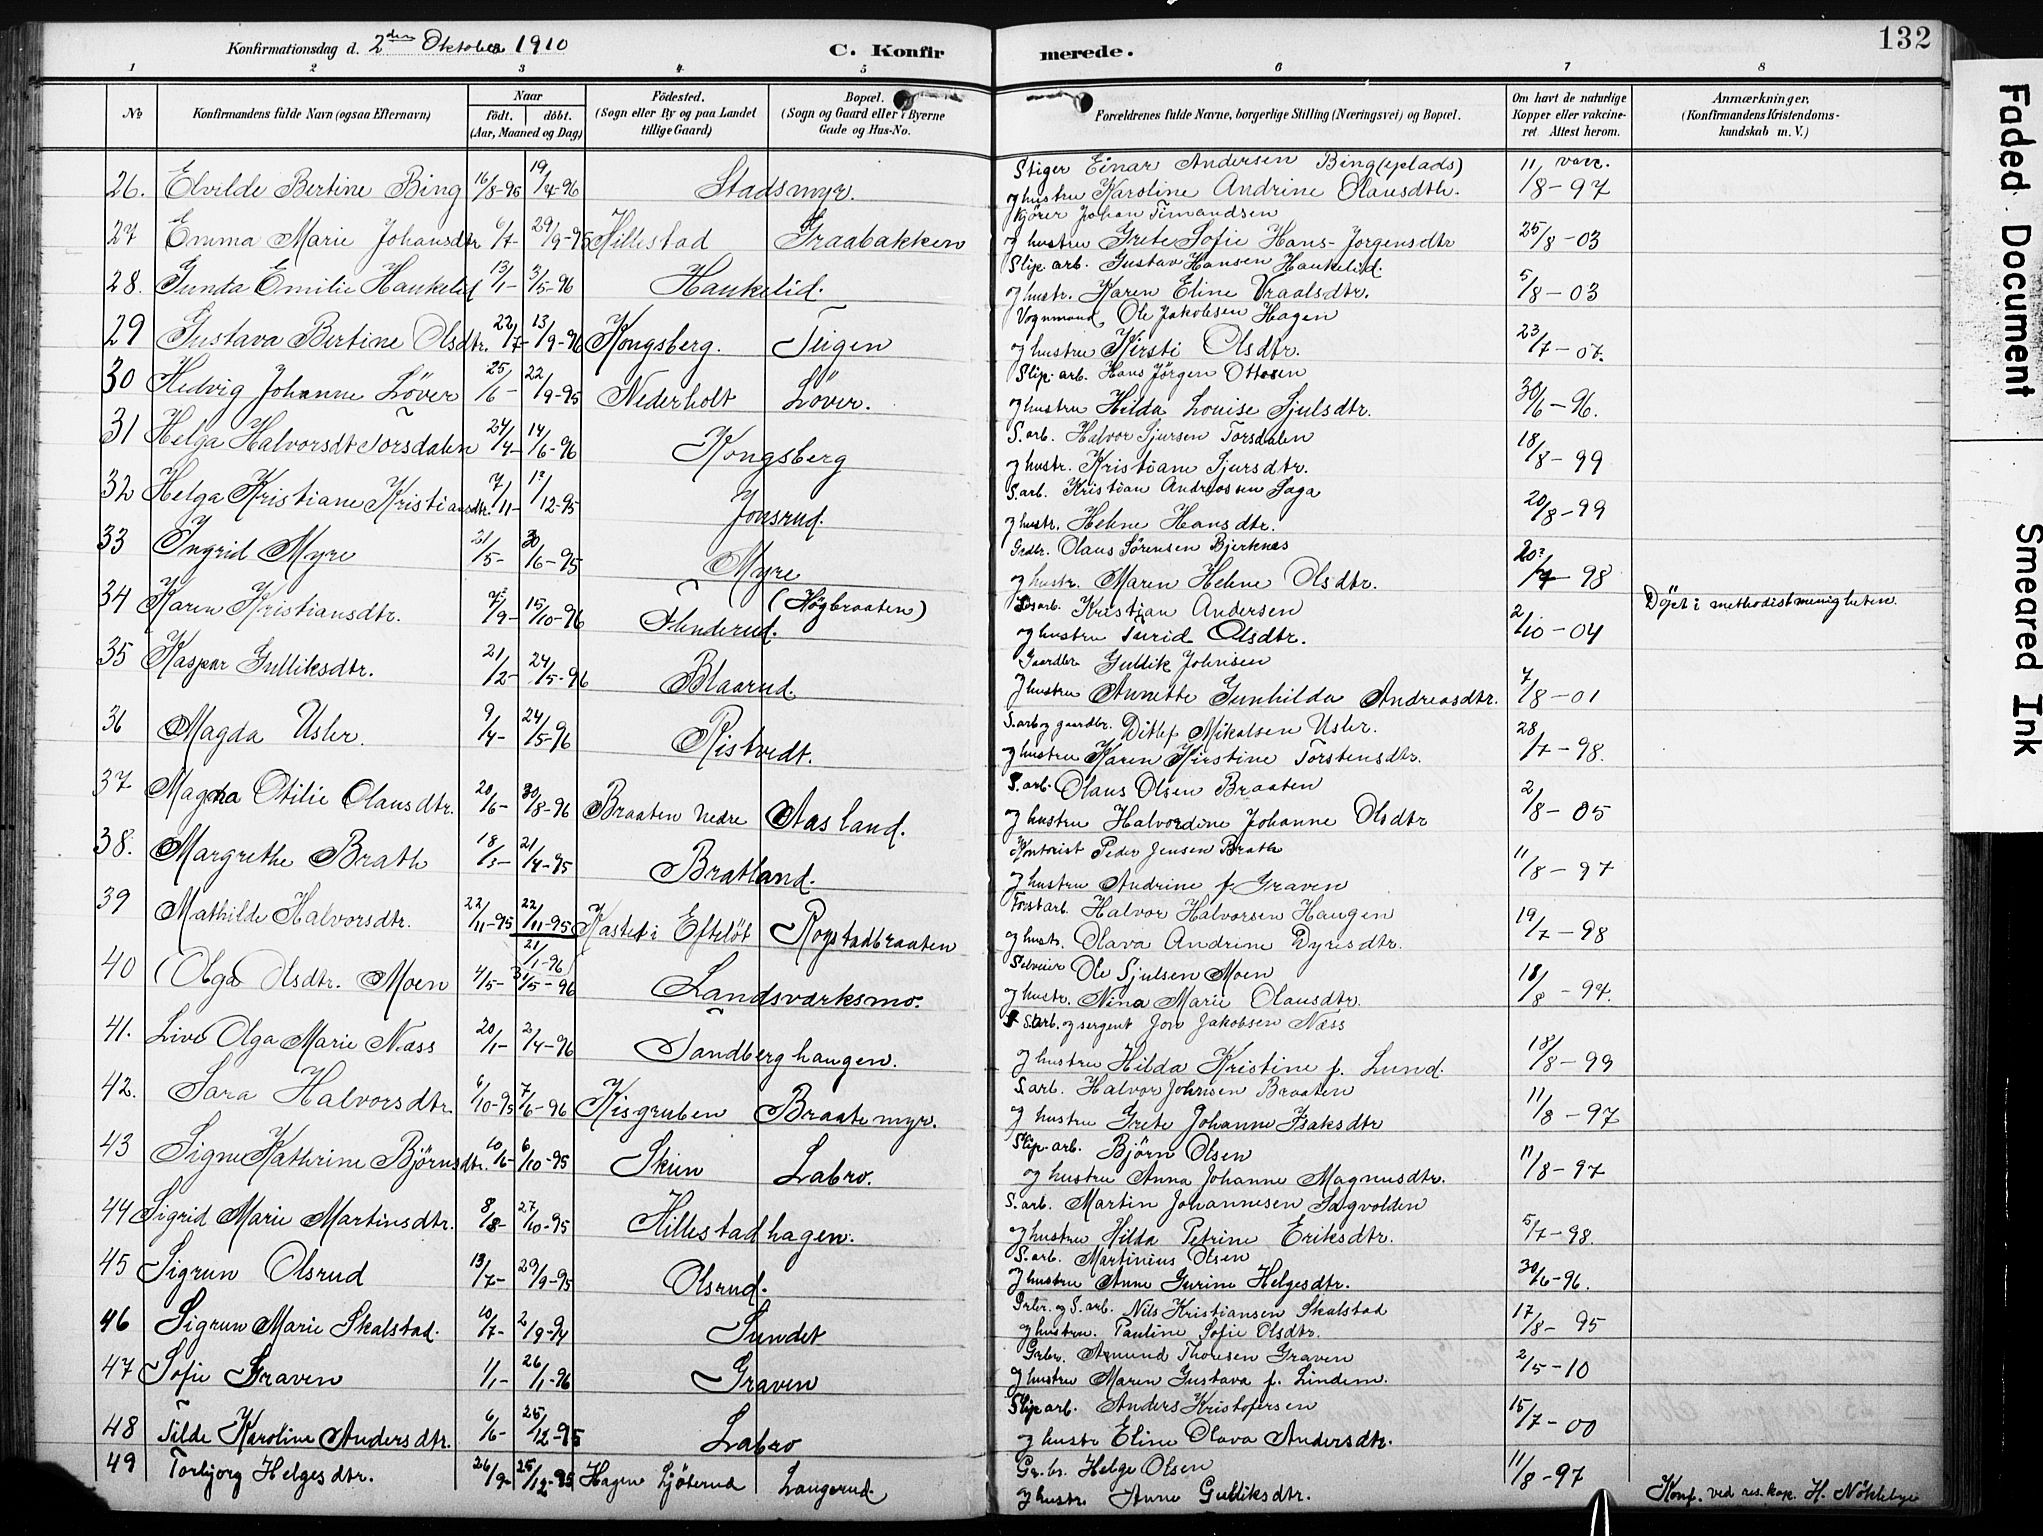 132
Konfirmationsdag d. 2den Oktober 1910 C. Konfirmerede.
1 2 3 4 5 6 7 8
No Konfirmandens fulde Navn (ogsaa Efternavn) Naar født. døbt. (Aar, Maaned og Dag) Fødested. (Sogn eller By og paa Landet tillige Gaard) Bopæl. (Sogn og Gaard eller i Byerne Gade og Hus-No. Forældrenes fulde Navne, borgerlige Stilling (Næringsvei) og Bopæl. Om havt de naturlige Kopper eller vakcineret Altest herom. Anmærkninger, (Konfirmandens Kristendomskundskab m. V.)
Stiger Einar Andersen Bing (eplads)
26. Elvilde Bertine Bing 16/8-95 19/4-96 Stadsmyr. og hustru Karoline Andrine Olausdtr. 11/8-97 vacc.
Kjører Johan Timandsen
27 Emma Marie Johansdtr 6/7- 29/9-95 Hillestad Graabakken og hustru Grete Sofie Hans-Jorgensdtr 25/8-03
Slip. arb. Gustav Hansen Haukelid.
28. Gunda Emilie Haukelid 13/1- 3/5-96 Haukelid. og hustr. Karen Eline Vraalsdtr. 5/8-03
Vognmand Ole Jakobsen Hagen
29 Gustava Bertine Olsdtr. 22/7- 13/9-96 Kongsberg. Teigen og hustru Kirsti Olsdtr. 23/7-07.
Slip. arb. Hans Jørgen Ottosen
30 Hedvig Johanne Løver 25/6- 22/9-95 Nederholt Løver. og hustru Hilda Louise Sjulsdtr. 30/6-96.
S. arb. Halvor Sjursen Torsdalen
31 Helga Halvorsdt Torsdalen 24/4- 14/6-96 Kongsberg og hustr. Kristiane Sjursdtr. 18/8-99
S. arb. Kristian Andreassen Saga
32 Helga Kristiane Kristiansdtr. 7/11- 1?/12-95 Jonsrud. og hustr. Helene Hansdtr. 20/8-99
Grdbr. Olaus Sørensen Bjerknes
33 Ingrid Myre 21/5- 30/6-95 Myre og hustr. Maren Helene Olsdtr. 20?/7-98
34 Karen Kristiansdtr. /9- 15/10-96 Flenderud. (Høgbraaten) S. arb. Kristian Andersen
og hustru Turid Olsdtr. 2/10-04 Døpt i methodistmenigheten.
Gaardbr. Gullik Johnsen
35 Kaspar Gulliksdtr. 21/2- 24/5-96 Blaarud. og hustru Annette Gunhilda Andreasdtr. 7/8-01
S. arb og gaardbr. Ditlef Mikalsen Usler.
36 Magda Usler. 9/4- 24/5-96 Ristvedt. og hustru Karen Kirstine Torstensdtr. 28/7-98.
S. arb. Olaus Olsen Braaten
37 Magna Otilie Olausdtr. 20/6- 30/8-96 Braaten nedre Aasland. og hustru Halvordine Johanne Olsdtr 2/8-05
Kontorist Peder Jensen Brath
38. Margrethe Brath 18/3- 21/4-95 Bratland. og hustru Andrine f. Graven 11/8-97
Forstarb. Halvor Halvorsen Haugen
39 Mathilde Halvorsdtr. 22/11-95 22/11-95 Kastet i Efteløt Rogstadbraaten og hustr. Olava Andrine Dyresdtr. 19/7-98
21/1-96
Sølveier Ole Sjulsen Moen
40 (Olga Olsdtr. Moen 4/5- 31/5-96 Landsværksmo. og hustr. Nina Marie Olausdtr. 18/8-97.
S. arb. og sergent Jon Jakobsen Næss
41. Live Olga Marie Næss 20/1- 2/4-96 Sandberghaugen. og hustru Hilda Kristine f. Lund. 18/8-99
S arb. Halvor Johnsen Braaten
42. Sara Halvorsdtr. 6/10-95 7/6-96 Kisgruben Braatemyr. og hustru Grete Johanne Isaksdtr 11/8-97
Slip. arb. Bjørn Olsen
43 Signe Kathrine Bjørnsdtr. 10/6- 6/10-95 Skien Labro. og hustru Anna Johanne Magnusdtr. 11/8-97
S. arb. Martin Johannesen Sagvolden
44 Sigrid Marie Martinsdtr. 8/8- 27/10-95 Hillestadhagen. og hustru Hilda Petrine Eriksdtr. 5/7-98.
S. arb. Martinius Olsen
45 Sigrun Olsrud 13/7- 29/9-95 Olsrud. og hustru Anne Gurine Helgesdtr. 30/6-96.
Grbr. og S. arb. Nils Kristiansen Skalstad
46 Sigrun Marie Skalstad. 10/7- 2/9-94 Sundet og hustru. Pauline Sofie Olsdtr. 17/8-95
Grbr. Amund Thoresen Graven
47 Sofie Graven 1/1- 26/1-96 Graven og hustru Maren Gustava f. Lindem. 2/5-10
Slip arb. Anders Kristofersen
48 Tilde Karoline Andersdtr. 6/6- 25/12-95 Labro og hustr Eline Olava Andersdtr. 15/7-00
Gr. br. Helge Olsen
49 Torbjorg Helgesdtr. 26/9- 25/12-95 Hagen Ljøterud Langerud. og hustr. Anne Gulliksdtr. 11/8-97
Konf. ved res. kap. H. Nøkleby
Faded Document
Smeared Ink